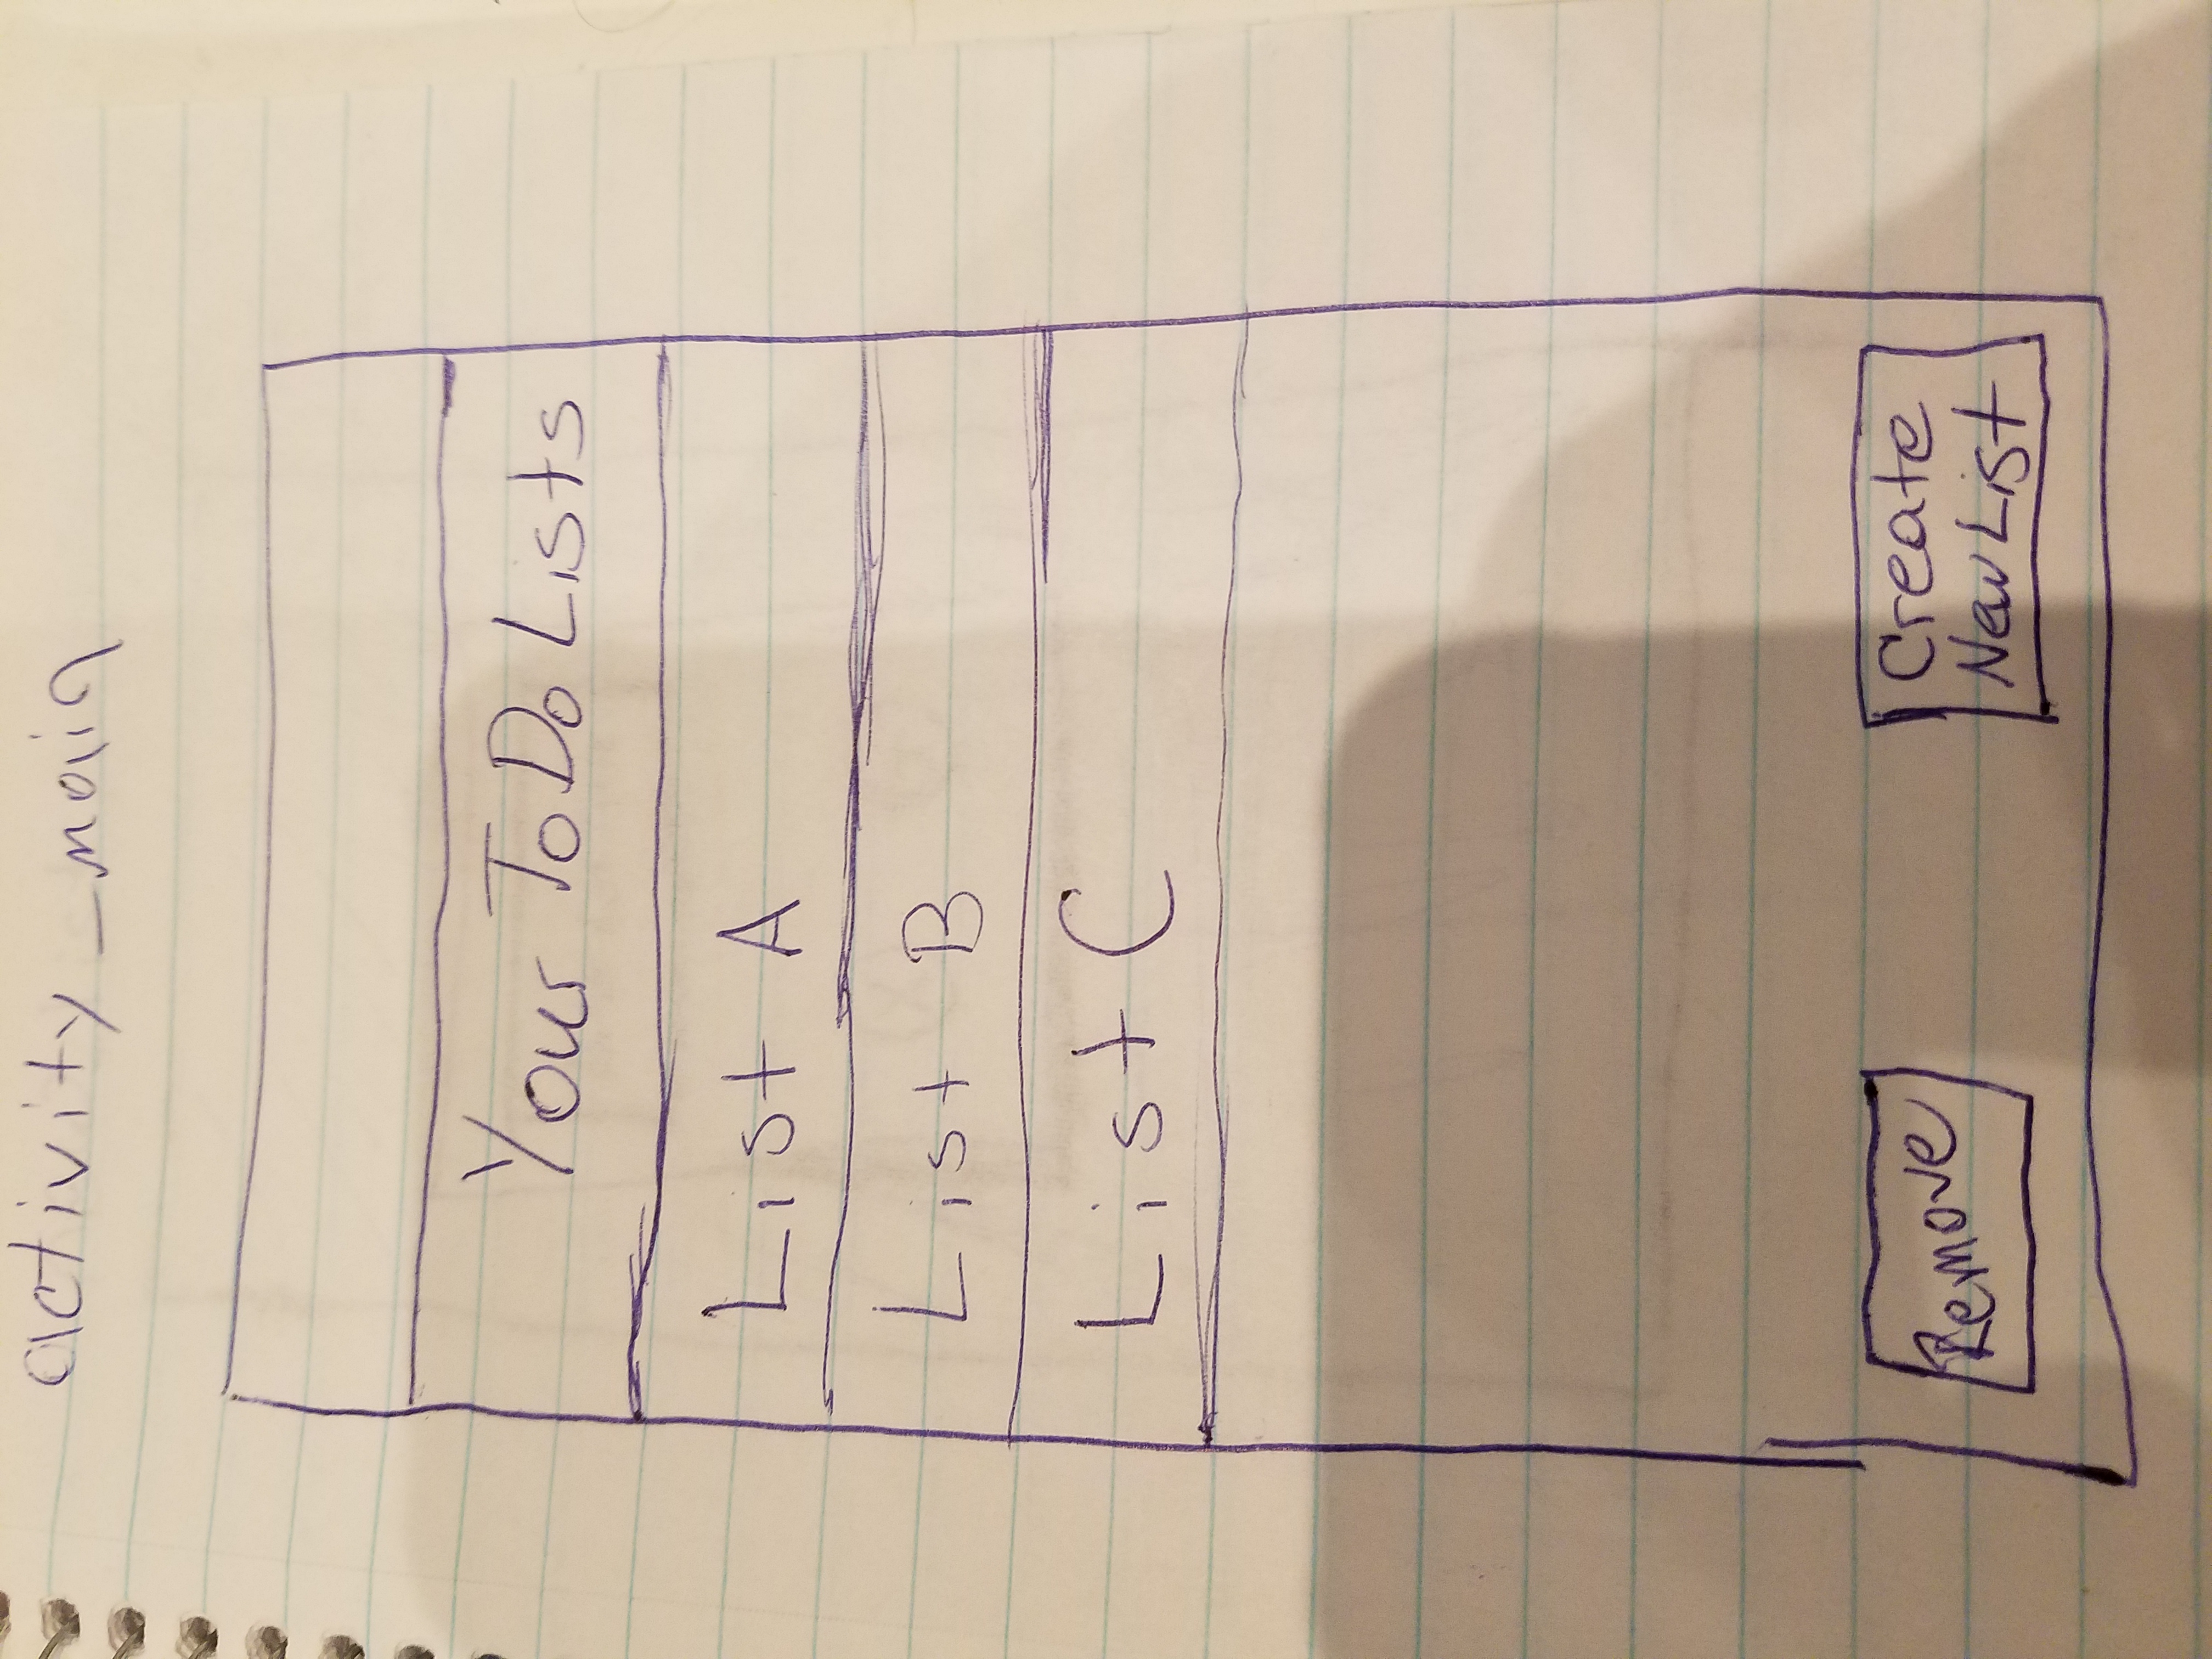 activity_main
Your ToDo Lists
List A
List B
List C
Remove
Create
New List